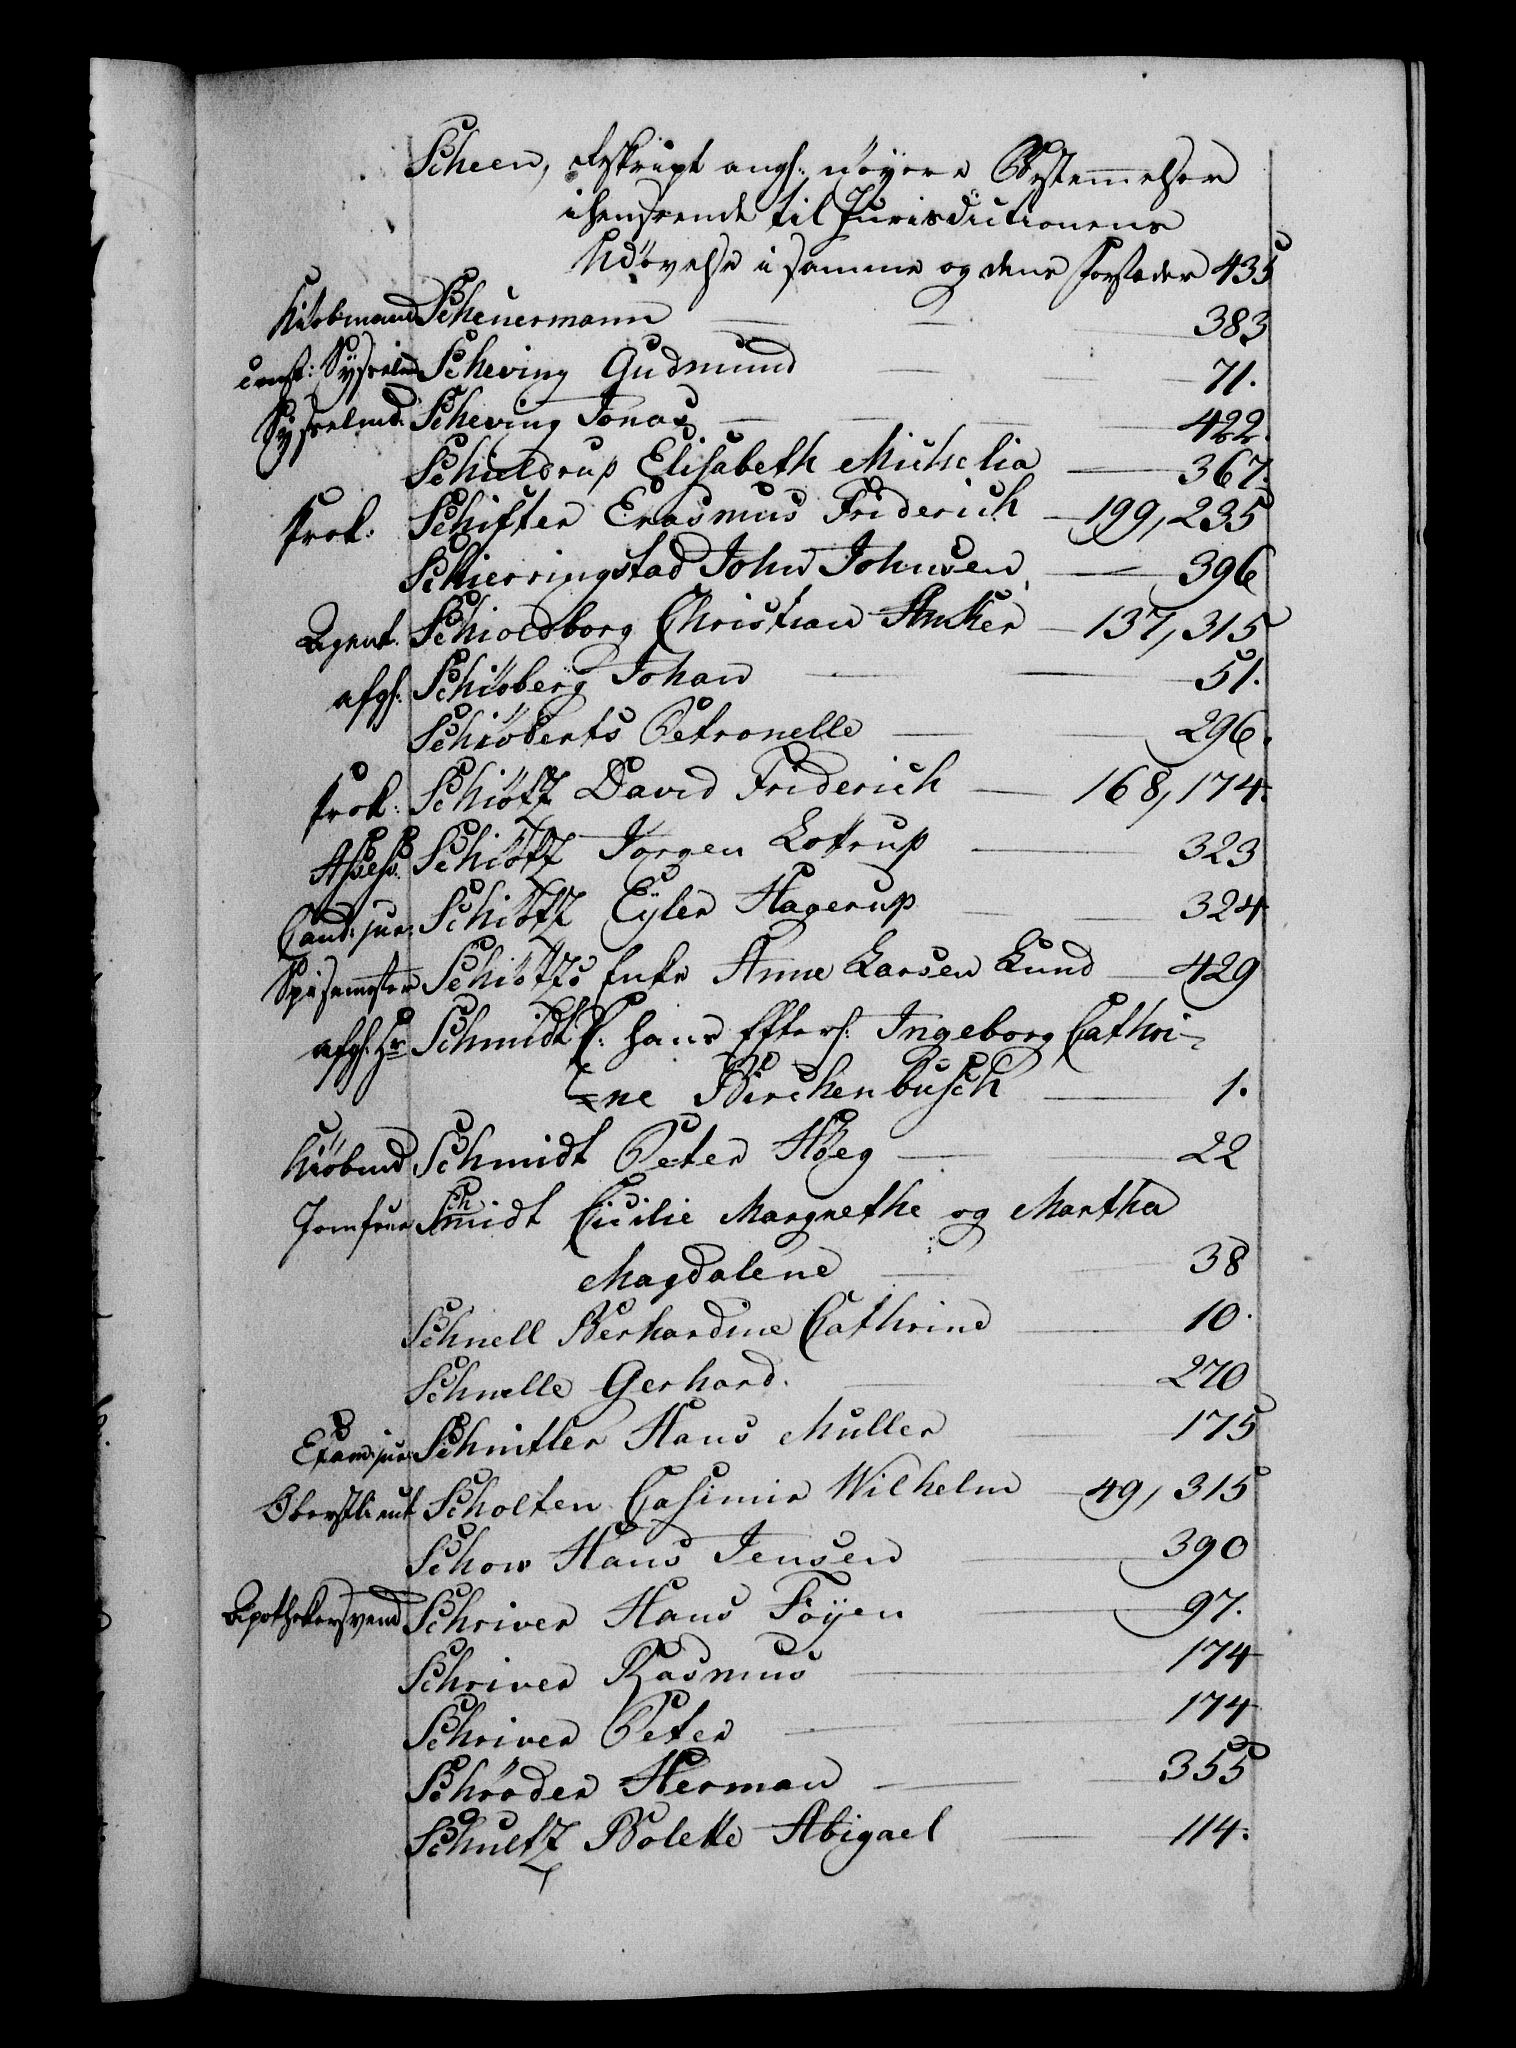 Scheen, Reskript angs: nöyere Bestemmelser
ihenseende til Jurisdictionens
Udövelse i samme og dens forstæder 435
Kiöbmand Scheuermann 383
const: Sysselm Scheving Gudmund 71.
Sysselmd: Scheving Jonas 422.
Schieldrup Elisabeth Michelia 367.
Prok: Schifter Erasmus Friderich 199, 235
Schierringstad John Johnsen 396
Agent. Schioldborg Christian Anker 137, 315
afgs: Schiöberg Johan 51.
Schiöberts Petronelle 296.
Prok: Schiötz David Friderich 168, 174.
Assess. Schiötz Jorgen Lotrup 323
Cand: jur: Schiötz Eyler Hagerup 324
Spisemester Schiötzs Enke Anne Larsen Lund 429
afgs. Hr Schmidt P. hans Efters: Ingeborg Cathri-
=ne Birchenbusch 1.
Kiöbmd Schmidt Peter Höeg 22
Jomfrue Schmidt Cicilie Margrethe og Martha
Magdalene 38
Schnell Berhardine Cathrine 10.
Schnelle Gerhard. 270
Exam: jur: Schnitler Hans Muller 175
Oberstlieut Scholten Casimir Wilhelm 49, 315
Schow Hans Jensen 390
Apothekersvend Schriver Hans Föyen 97.
Schriver Rasmus 174
Schriver Peter 174
Schröder Herman 355
Schultz Bolette Abigael 114.